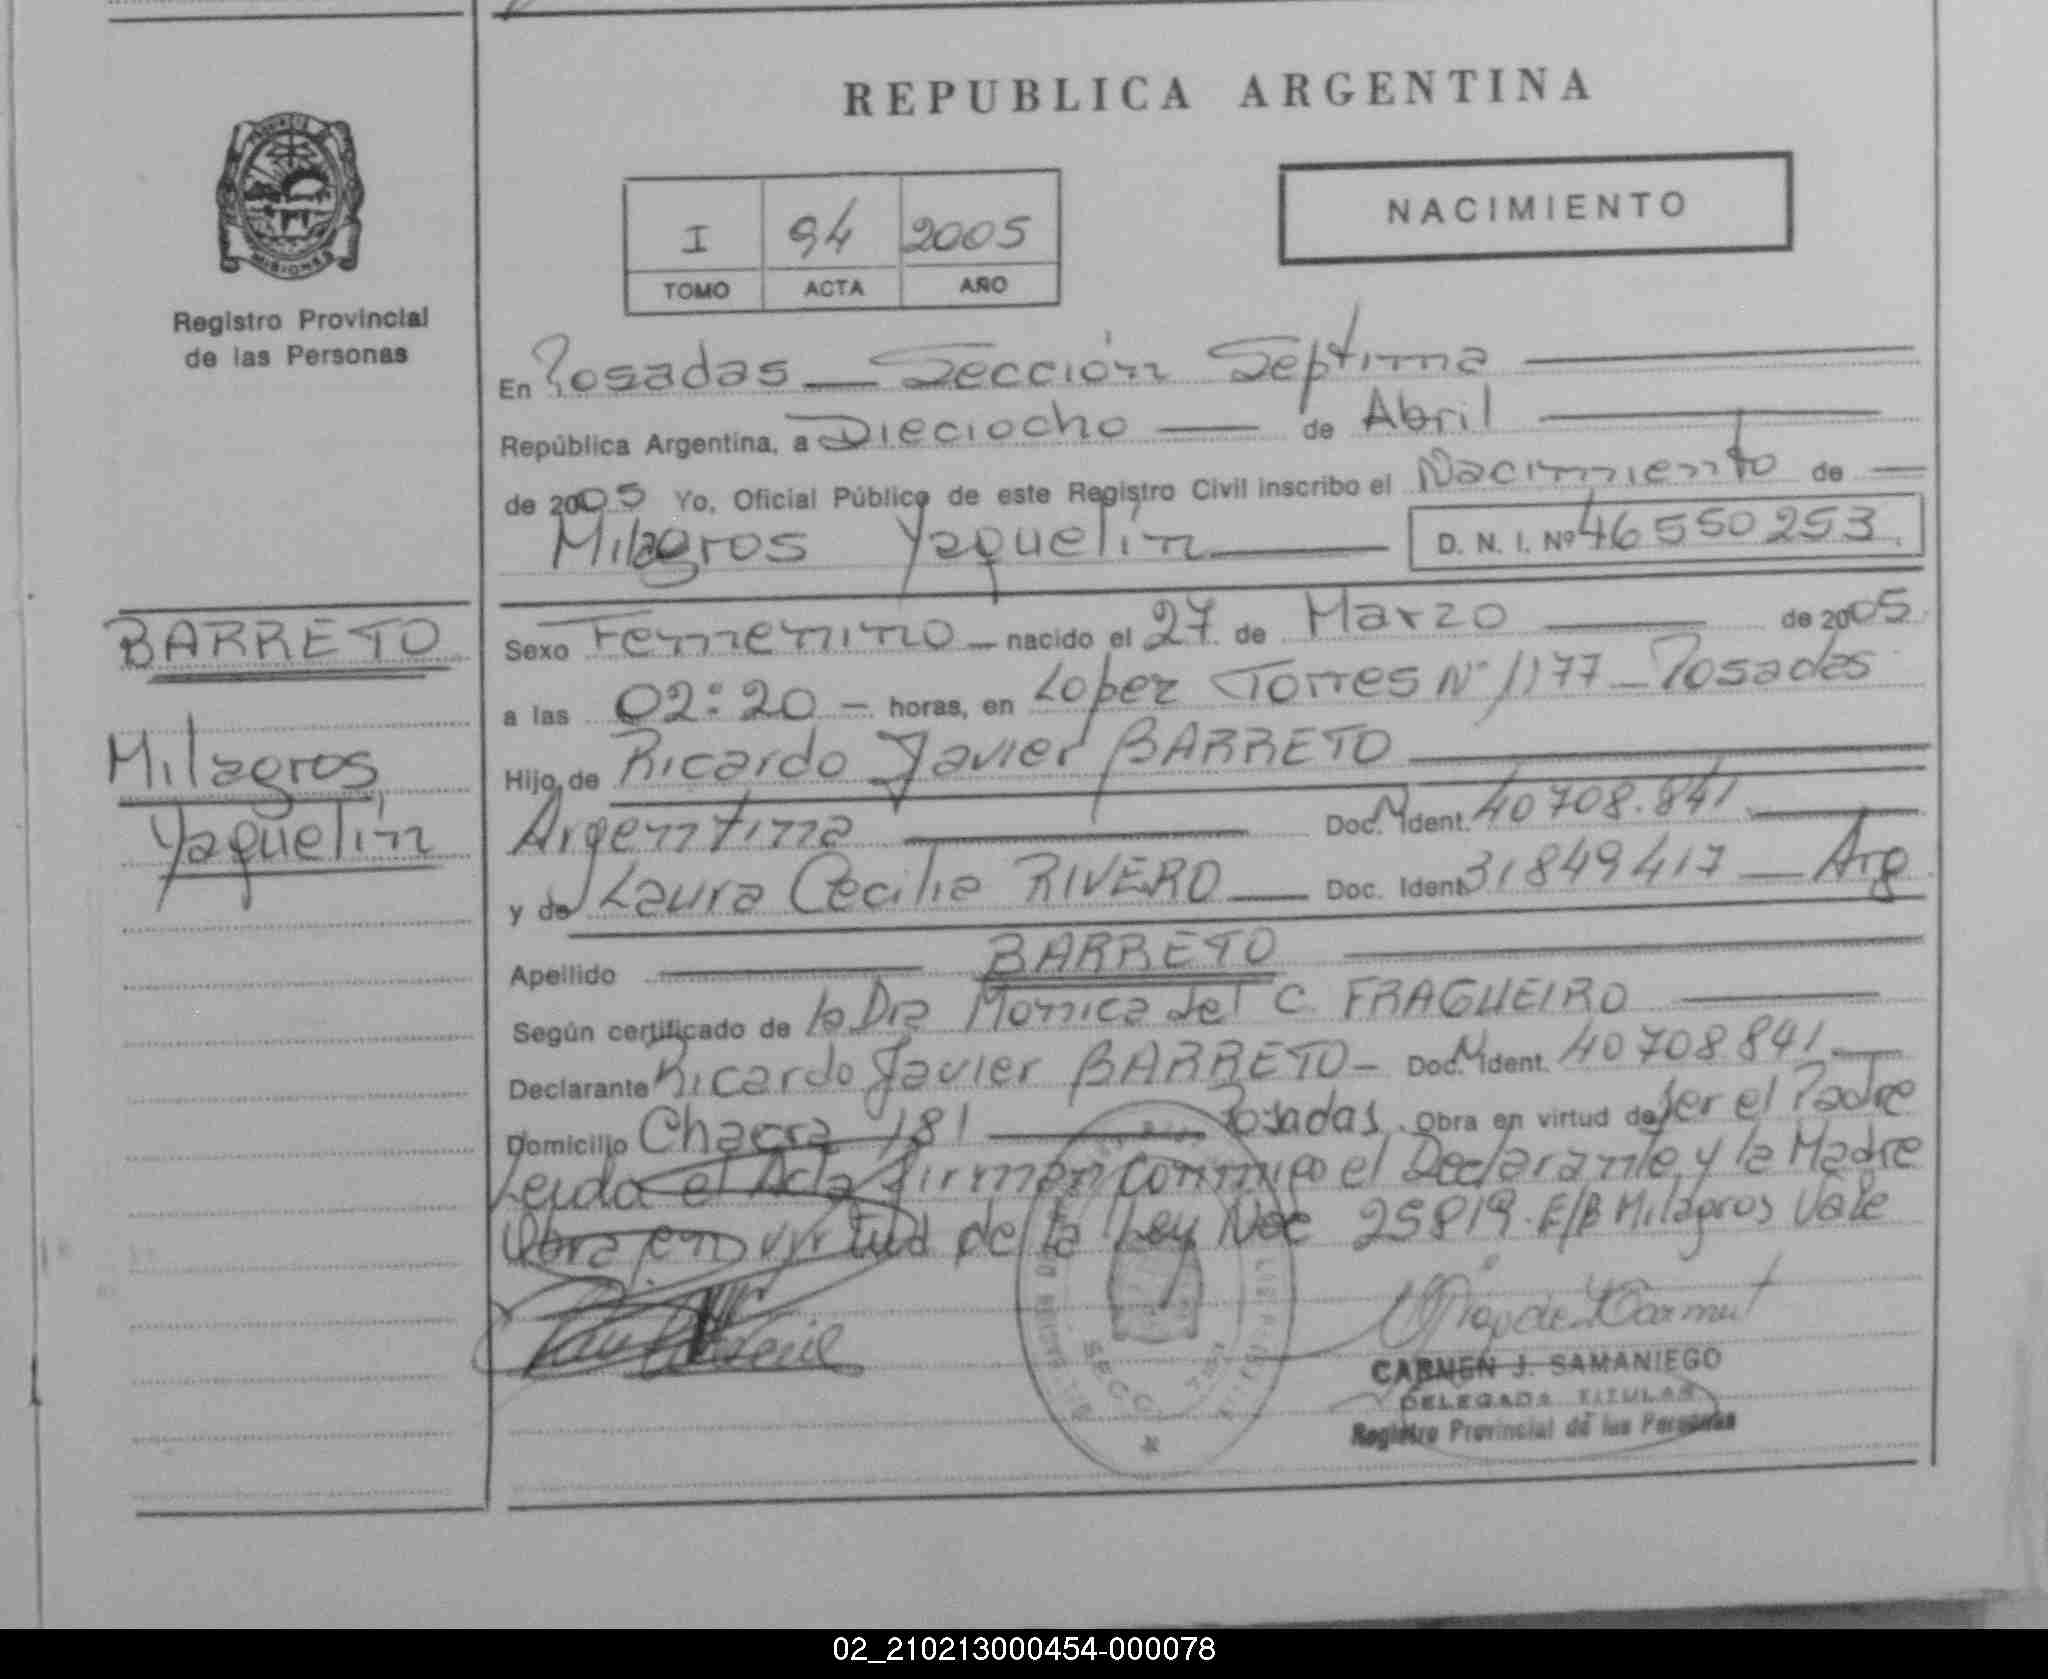 REPUBLICA ARGENTINA
NACIMIENTO
I 94 2005
TOMO ACTA AÑO
MISIONES
Registro Provincial
de las Personas
En Posadas — Sección Septima
República Argentina, a Dieciocho — de Abril
de 2005 Yo, Oficial Público de este Registro Civil inscribo el Nacimiento de —
Milagros Yaquelin — D. N. I. Nº 46550253.
BARRETO
Milagros
Yaquelin
Sexo Femenino — nacido el 27 de Marzo — de 2005
a las 02:20 — horas, en Lopez Torres Nº 1177 — Posadas
Hijo de Ricardo Javier BARRETO
Argentina — Doc. M Ident. 40708.841
y de Laura Cecilia RIVERO — Doc. Ident 31849417 — Arg
Apellido — BARRETO
Según certificado de la Dra Monica del C. FRAGUEIRO
Declarante Ricardo Javier BARRETO — Doc. M Ident. 40708841
Domicilio Chacra 181 — Posadas. Obra en virtud de ser el Padre
Leida el Acta firman conmigo el Declarante y la Madre
Obra en virtud de la Ley Nac 25819. E/B Milagros Vale
SECC
CARMEN J. SAMANIEGO
DELEGADA TITULAR
Registro Provincial de las Personas
02_210213000454-000078